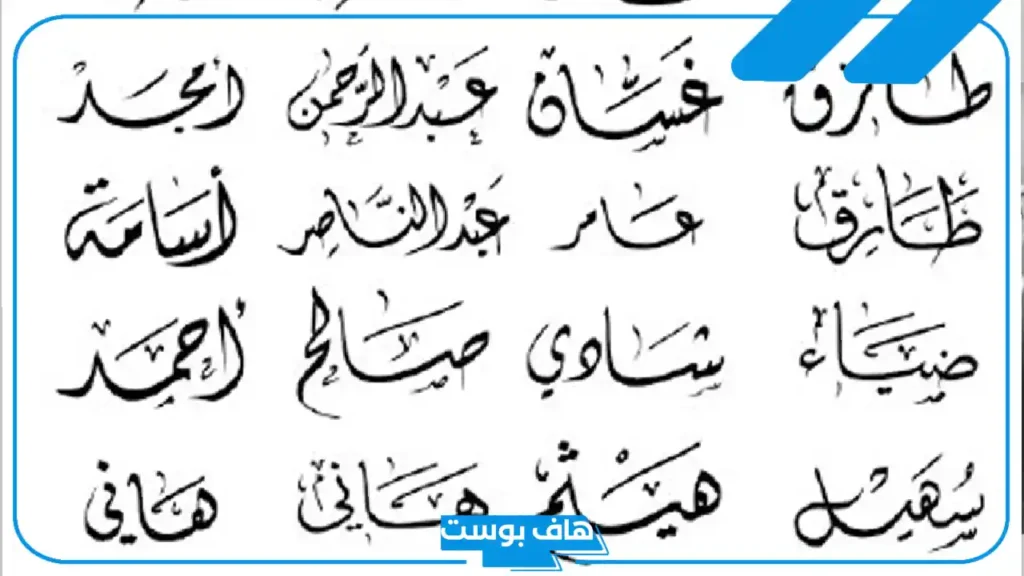 طارق غسان عبدالرحمن امجد
طَارِق عامر عبدالنَّاصر أسامة
ضيَاء شادي صالح أحمد
سُهَيل هيثم هاني هاني
هاف بوست